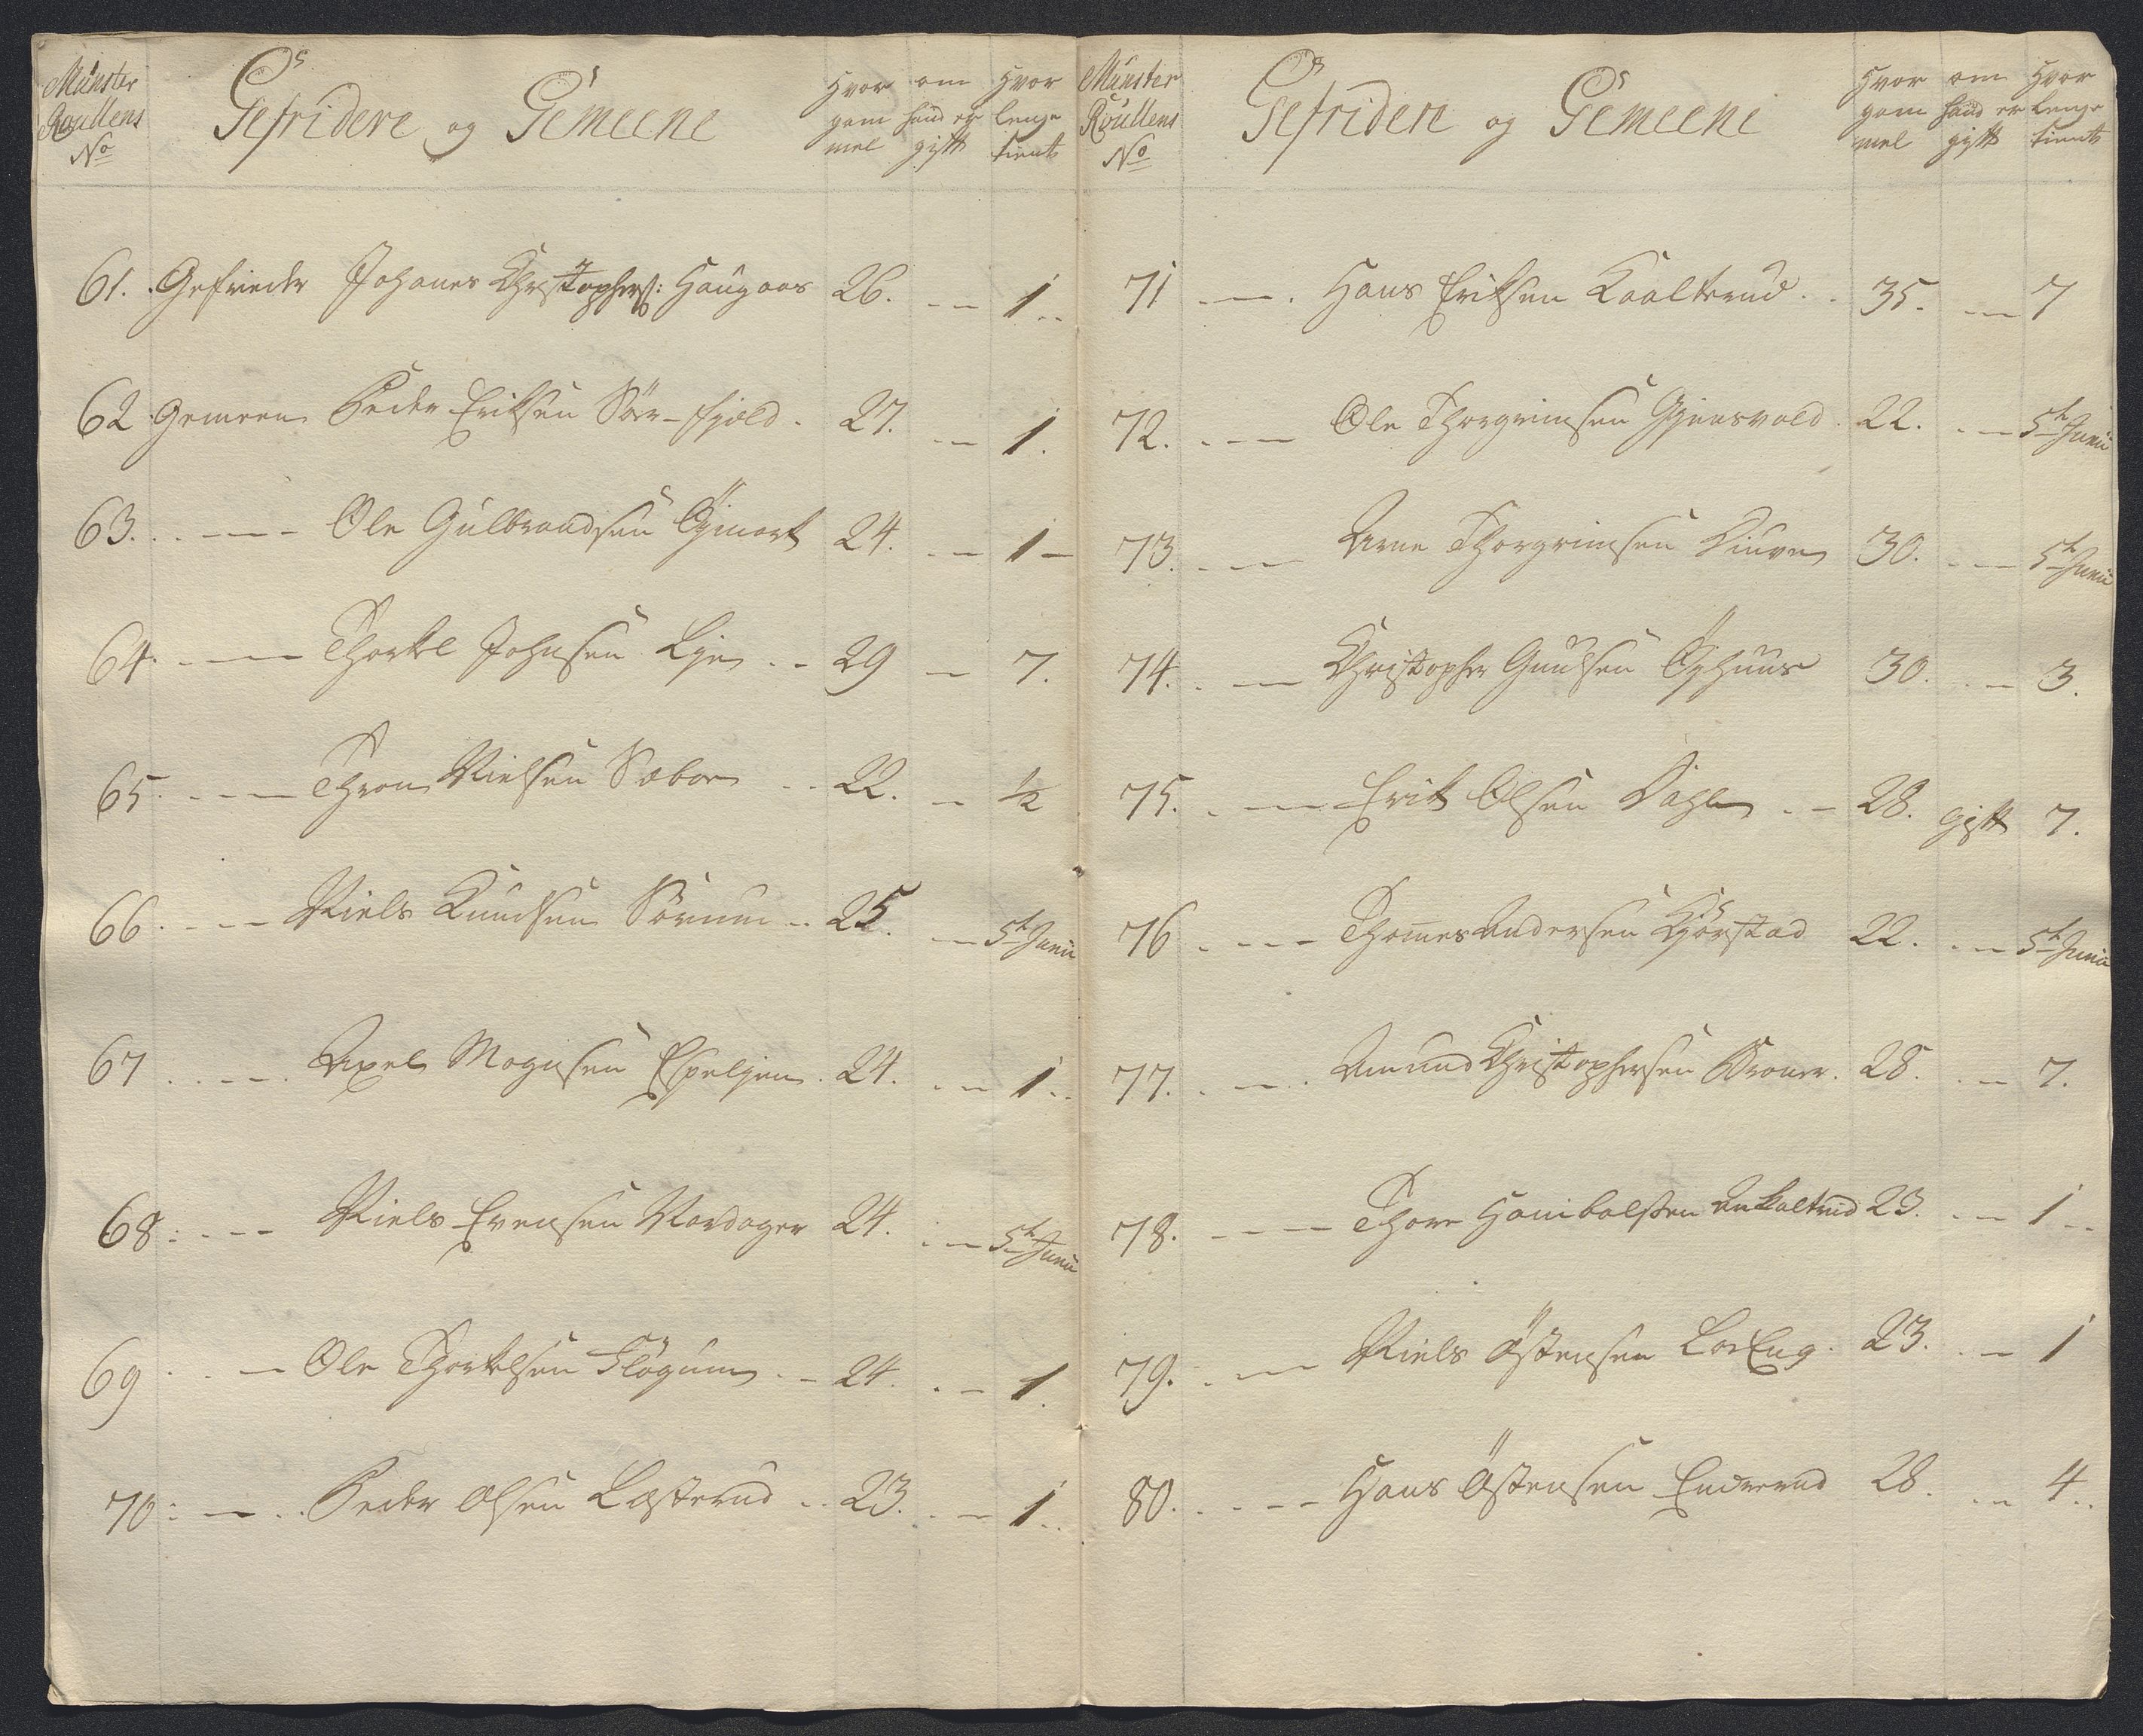 Münster
Roullens
No
Gefridere og Gemeene
Hvor
gam
mel
om
hand er
gift
Hvor
lenge
tient
61. Gefrieder Johanes Christophers: Haugaas 26. -- 1..
62 Gemeen Peder Eriksen Sör-fjold. 27. -- 1.
63. .. --- Ole Gulbrandsen Öymark 24. -- 1 -
64. --- Thorkel Johnsen Lye .. 29 - 7.
65. --- Thron Nielsen Sæbøe .. 22. - 1/2
66. --- Niels Knudsen Sörum .. 25. - 5te Junii
67 .--- Axel Mogensen Espeljen. 24. -- 1..
68: .-- Niels Evensen Nordager 24. .-- 5te Junii
69 .. - Ole Thorkelsen Flögum .- 24. .- 1.
70: -.. Peder Olsen Læsterud .. 23. .- 1..
Münster
Roullens
No
Gefridere og Gemeene
Hvor
gam
mel
om
hand er
gift
Hvor
lenge
tient
71 --. Hans Eriksen Kaalterud .. 35. -- 7
72. .-- Ole Thorgrimsen Gjensvold. 22. .-- 5te Junii
73. .-- Arne Thorgrimsen 30. .-- 5te Junii
74. .-- Christopher Gundsen Öyhuus 30. .- 3.
75. .-- Erik Olsen Dahle .- 28. gift 7.
76 .--- Thomes Andersen Kjörstad 22. .-- 5te Junii
77. .--. Amund Christophersen Broner. 28. .- 7.
78. --- Thore Hanibalsen Ankaltrud 23. .- 1..
79. .-- Niels Östensen LorEng. 23. .- 1
80. .--- Hans Östensen Enderud 28. .- 4..